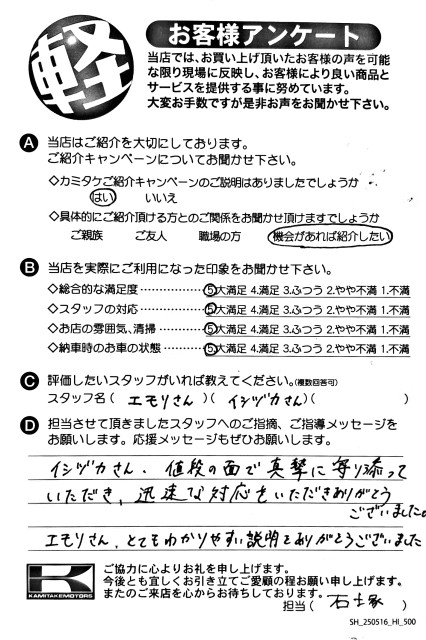 軽
お客様アンケート
当店では、お買い上げ頂いたお客様の声を可能
な限り現場に反映し、お客様により良い商品と
サービスを提供する事に努めています。
大変お手数ですが是非お声をお聞かせ下さい。
A 当店はご紹介を大切にしております。
ご紹介キャンペーンについてお聞かせ下さい。
◇カミタケご紹介キャンペーンのご説明はありましたでしょうか
はい いいえ
◇具体的にご紹介頂ける方とのご関係をお聞かせ頂けますでしょうか
ご親族 ご友人 職場の方 機会があれば紹介したい
B 当店を実際にご利用になった印象をお聞かせ下さい。
◇総合的な満足度…………5大満足 4.満足 3.ふつう 2.やや不満 1.不満
◇スタッフの対応…………5大満足 4.満足 3.ふつう 2.やや不満 1.不満
◇お店の雰囲気、清掃………5大満足 4.満足 3.ふつう 2.やや不満 1.不満
◇納車時のお車の状態………5大満足 4.満足 3.ふつう 2.やや不満 1.不満
C 評価したいスタッフがいれば教えてください。(複数回答可)
スタッフ名( エモリさん )( イシヅカさん )( )
D 担当させて頂きましたスタッフへのご指摘、ご指導メッセージを
お願いします。応援メッセージもぜひお願いします。
イシヅカさん、値段の面で真摯に寄り添って
いただき、迅速な対応をいただきありがとう
ございました。
エモリさん、とてもわかりやすい説明をありがとうございました
K
KAMITAKEMOTORS
ご協力に心よりお礼を申し上げます。
今後とも宜しくお引き立てご愛顧の程お願い申し上げます。
またのご来店を心からお待ちしております。
担当( 石塚 )
SH_250516_HI_500